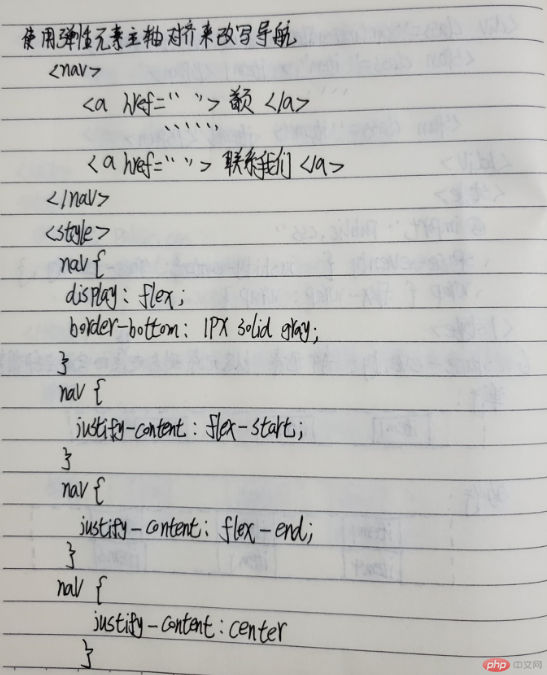 使用弹性元素主轴对齐来改写导航
<nav>
<a href=" "> 首页 </a>
......
<a href=" "> 联系我们 </a>
</nav>
<style>
nav {
display: flex;
border-bottom: 1PX solid gray;
}
nav {
justify-content: flex-start;
}
nav {
justify-content: flex-end;
}
nav {
justify-content: center
}
php 中文网